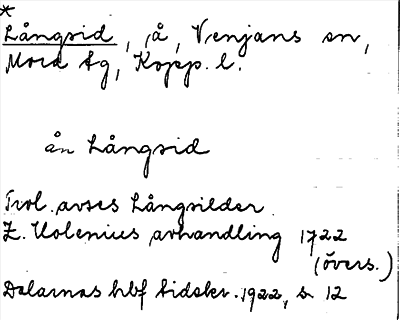 *
Långsid, å, Venjans sn,
Mora tg, Kopp. l.
ån Långsid
Trol. avses Långsilder
Z. Uolenius avhandling 1722
(övers.)
Dalarnas hbf tidskr. 1922, s 12